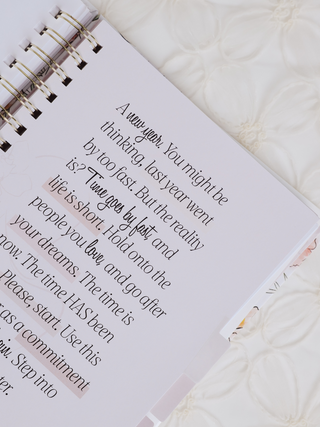 A new year. You might be
thinking, last year went
by too fast. But the reality
is? Time goes by fast, and
life is short. Hold onto the
people you love, and go after
your dreams. The time is
now. The time HAS been
Please, start. Use this
as a commitment
Step into